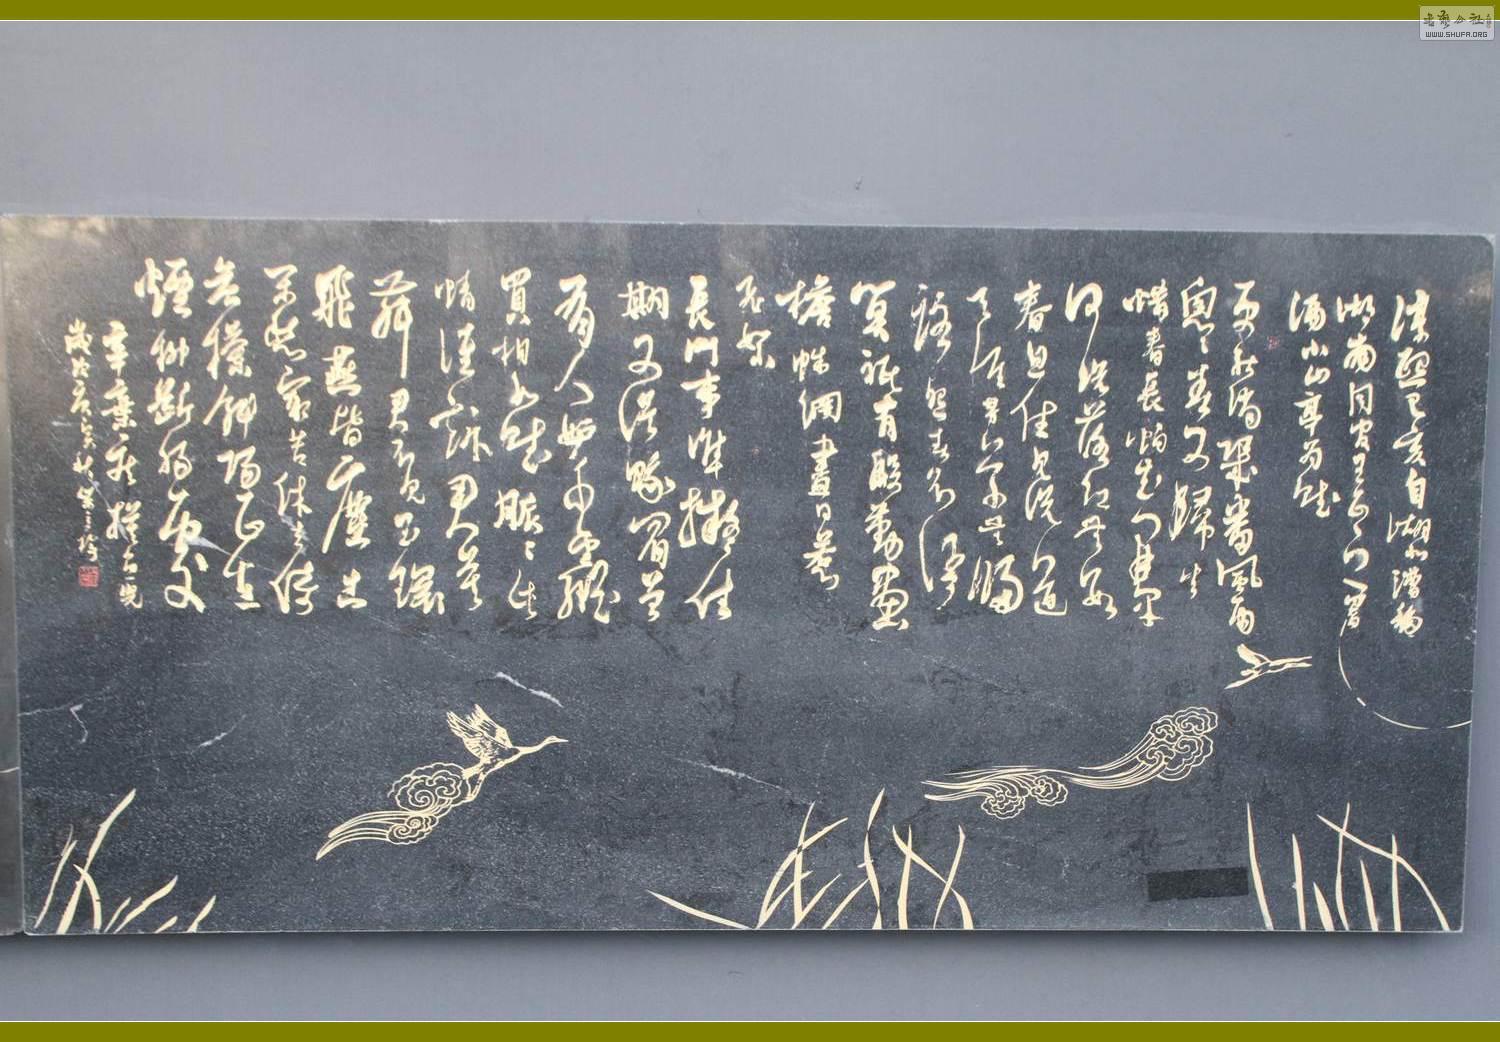 淳熙己亥自湖北漕移
湖南同官王正之置
酒小山亭爲賦
更能消幾番風雨
匆匆春又歸去
惜春長怕花開早
何況落紅無數
春且住見說道
天涯芳草無歸
路怨春不語
算祇有殷勤畫
檐蛛網盡日惹
飛絮
長門事準擬佳
期又誤蛾眉曾
有人妒千金縱
買相如賦脈脈此
情誰訴君莫
舞君不見玉環
飛燕皆塵土
閑愁最苦休去倚
危欄斜陽正在
煙柳斷腸處
辛棄疾摸魚兒
WWW.SHUFA.ORG